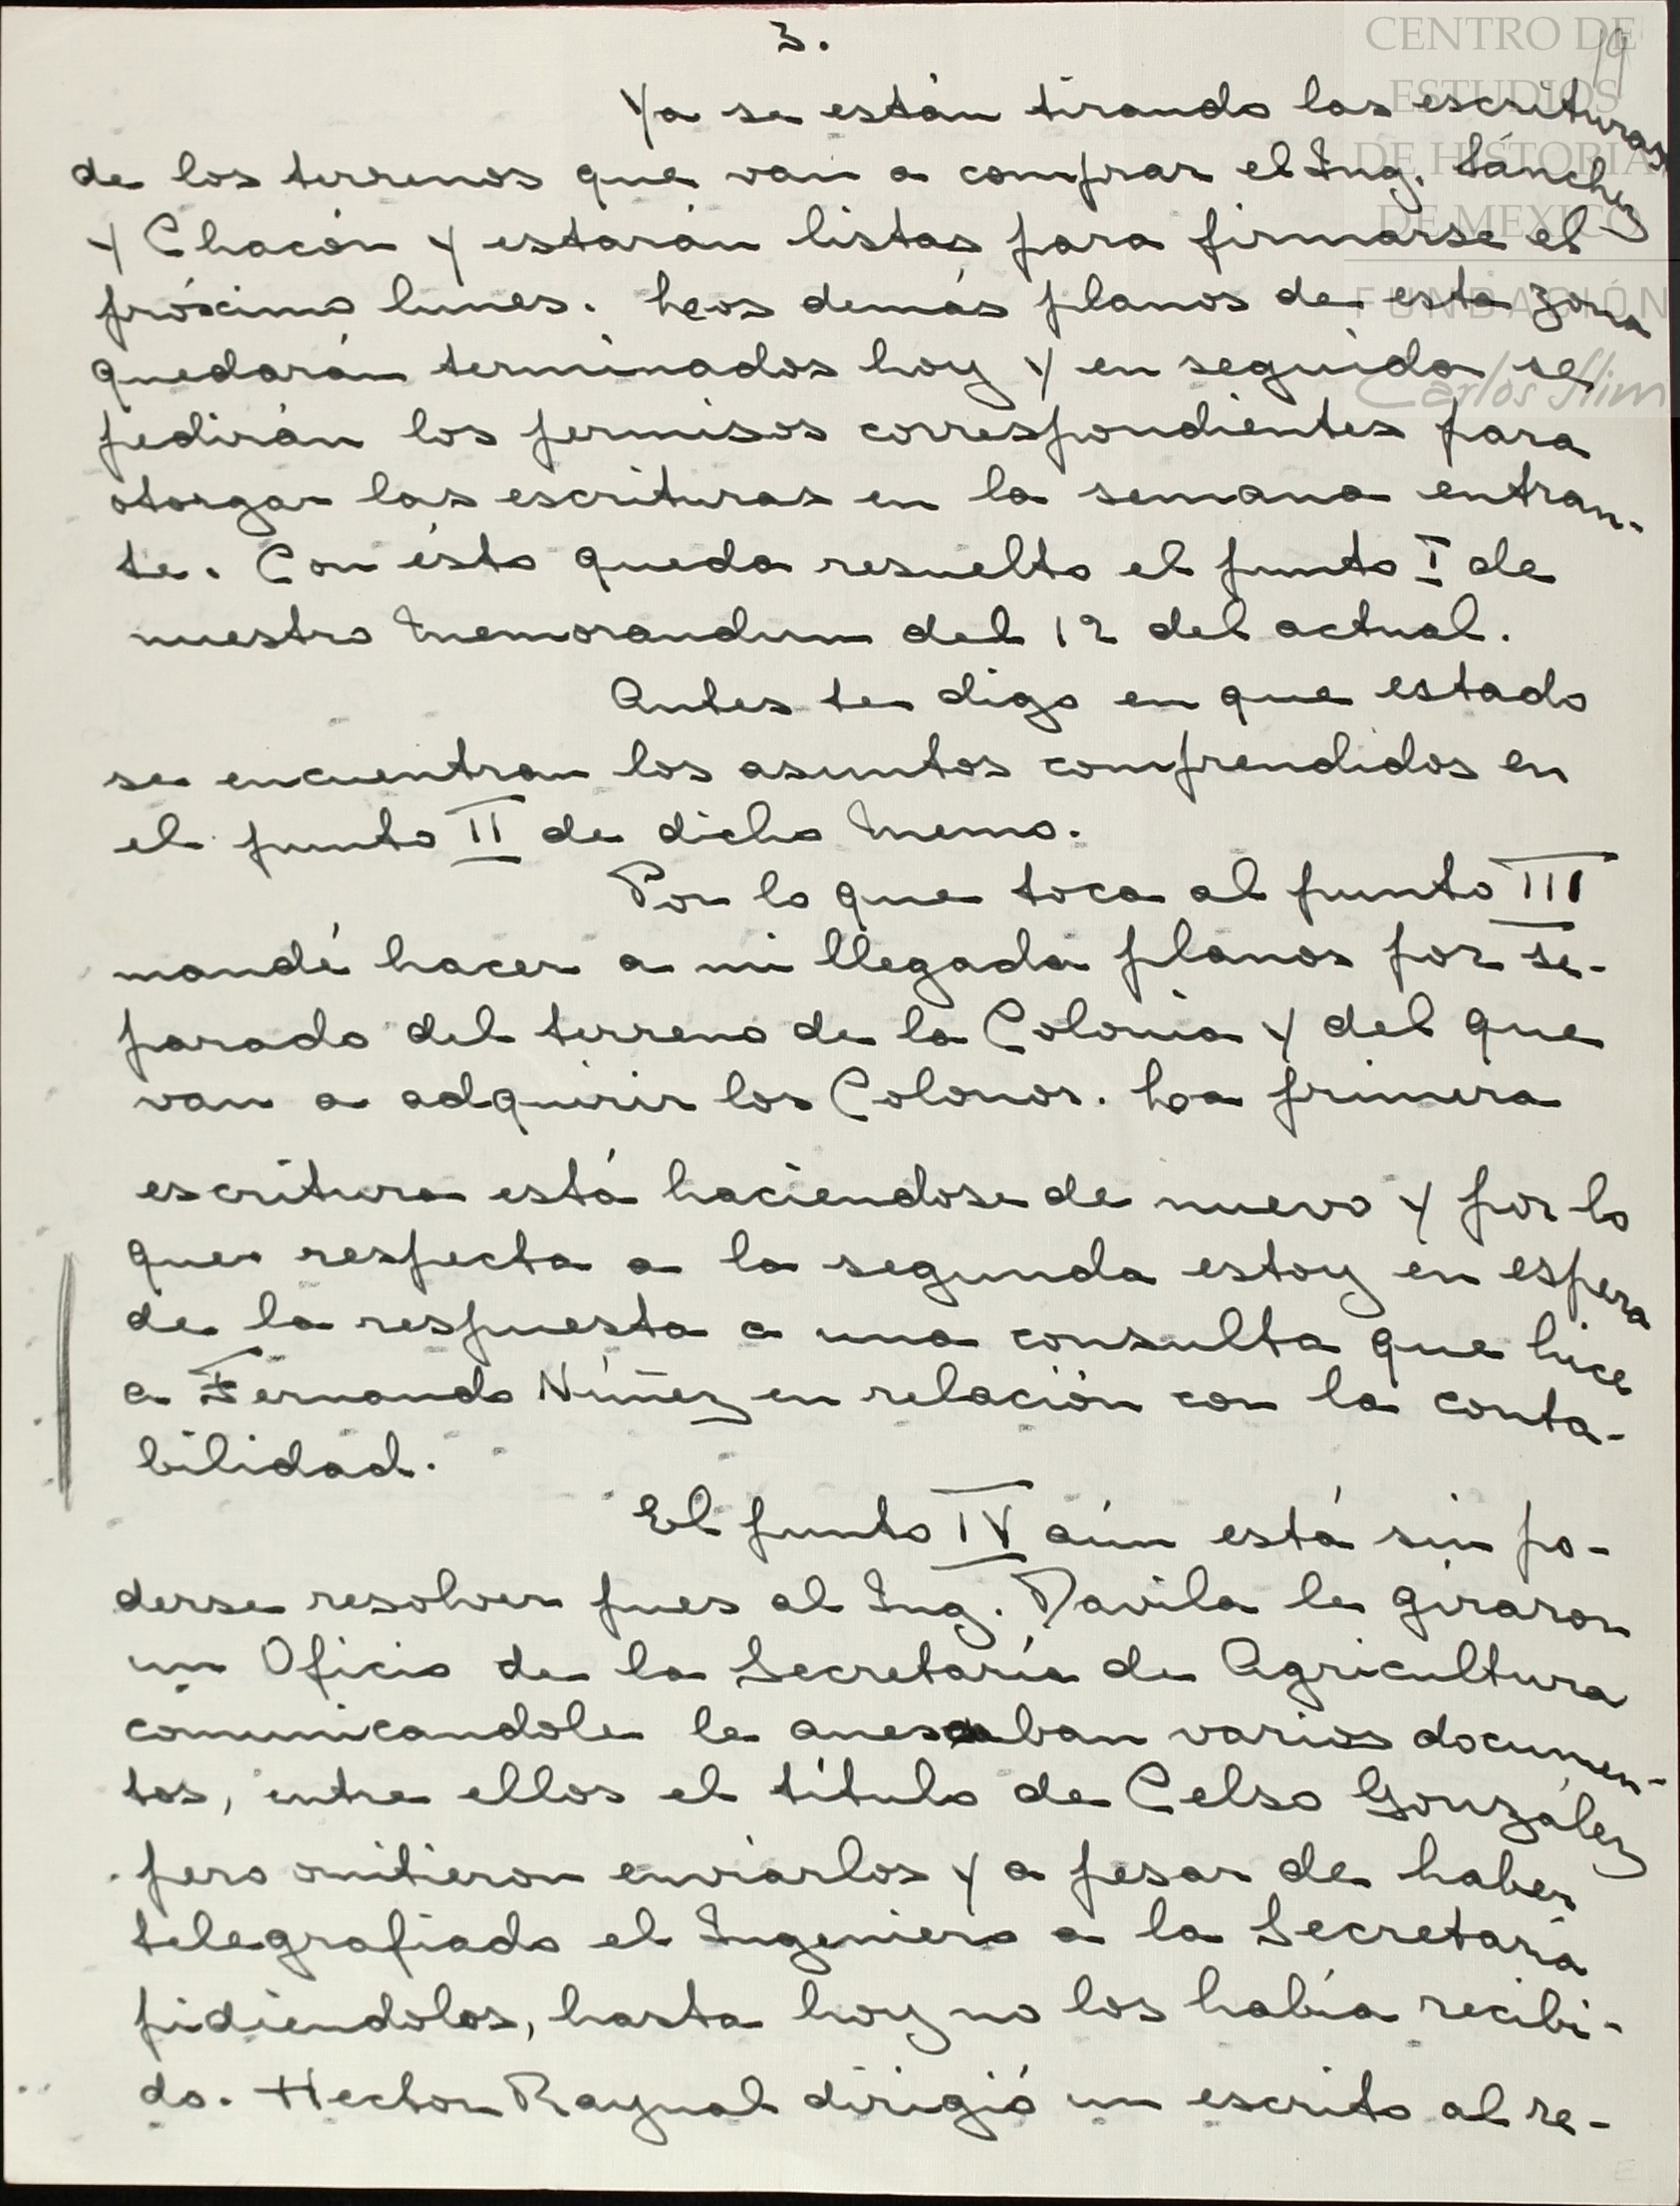 3.
19
CENTRO DE
ESTUDIOS
DE HISTORIA
DE MEXICO
FUNDACIÓN
Carlos Slim
Ya se están tirando las escrituras
de los terrenos que van a comprar el Ing. Sánchez
y Chacón y estarán listas para firmarse el
próximo lunes. Los demás planos de esta zona
quedarán terminados hoy y en seguida se
pedirán los permisos correspondientes para
otorgar las escrituras en la semana entran-
te. Con ésto queda resuelto el punto I de
nuestro Memorandum del 12 del actual.
Antes te digo en que estado
se encuentran los asuntos comprendidos en
el punto II de dicho Memo.
Por lo que toca al punto III
mandé hacer a mi llegada planos por se-
parado del terreno de la Colonia y del que
van a adquirir los Colonos. La primera
escritura está haciendose de nuevo y por lo
que respecta a la segunda estoy en espera
de la respuesta a una consulta que hice
a Fernando Núñez en relación con la conta-
bilidad.
El punto IV aún está sin po-
derse resolver pues al Ing. Davila le giraron
un Oficio de la Secretaría de Agricultura
comunicandole le anexaban varios documen-
tos, entre ellos el título de Celso González
pero omitieron enviarlos y a pesar de haber
telegrafiado el Ingeniero a la Secretaría
pidiéndolos, hasta hoy no los había recibi-
do. Hector Raynal dirigió un escrito al re-